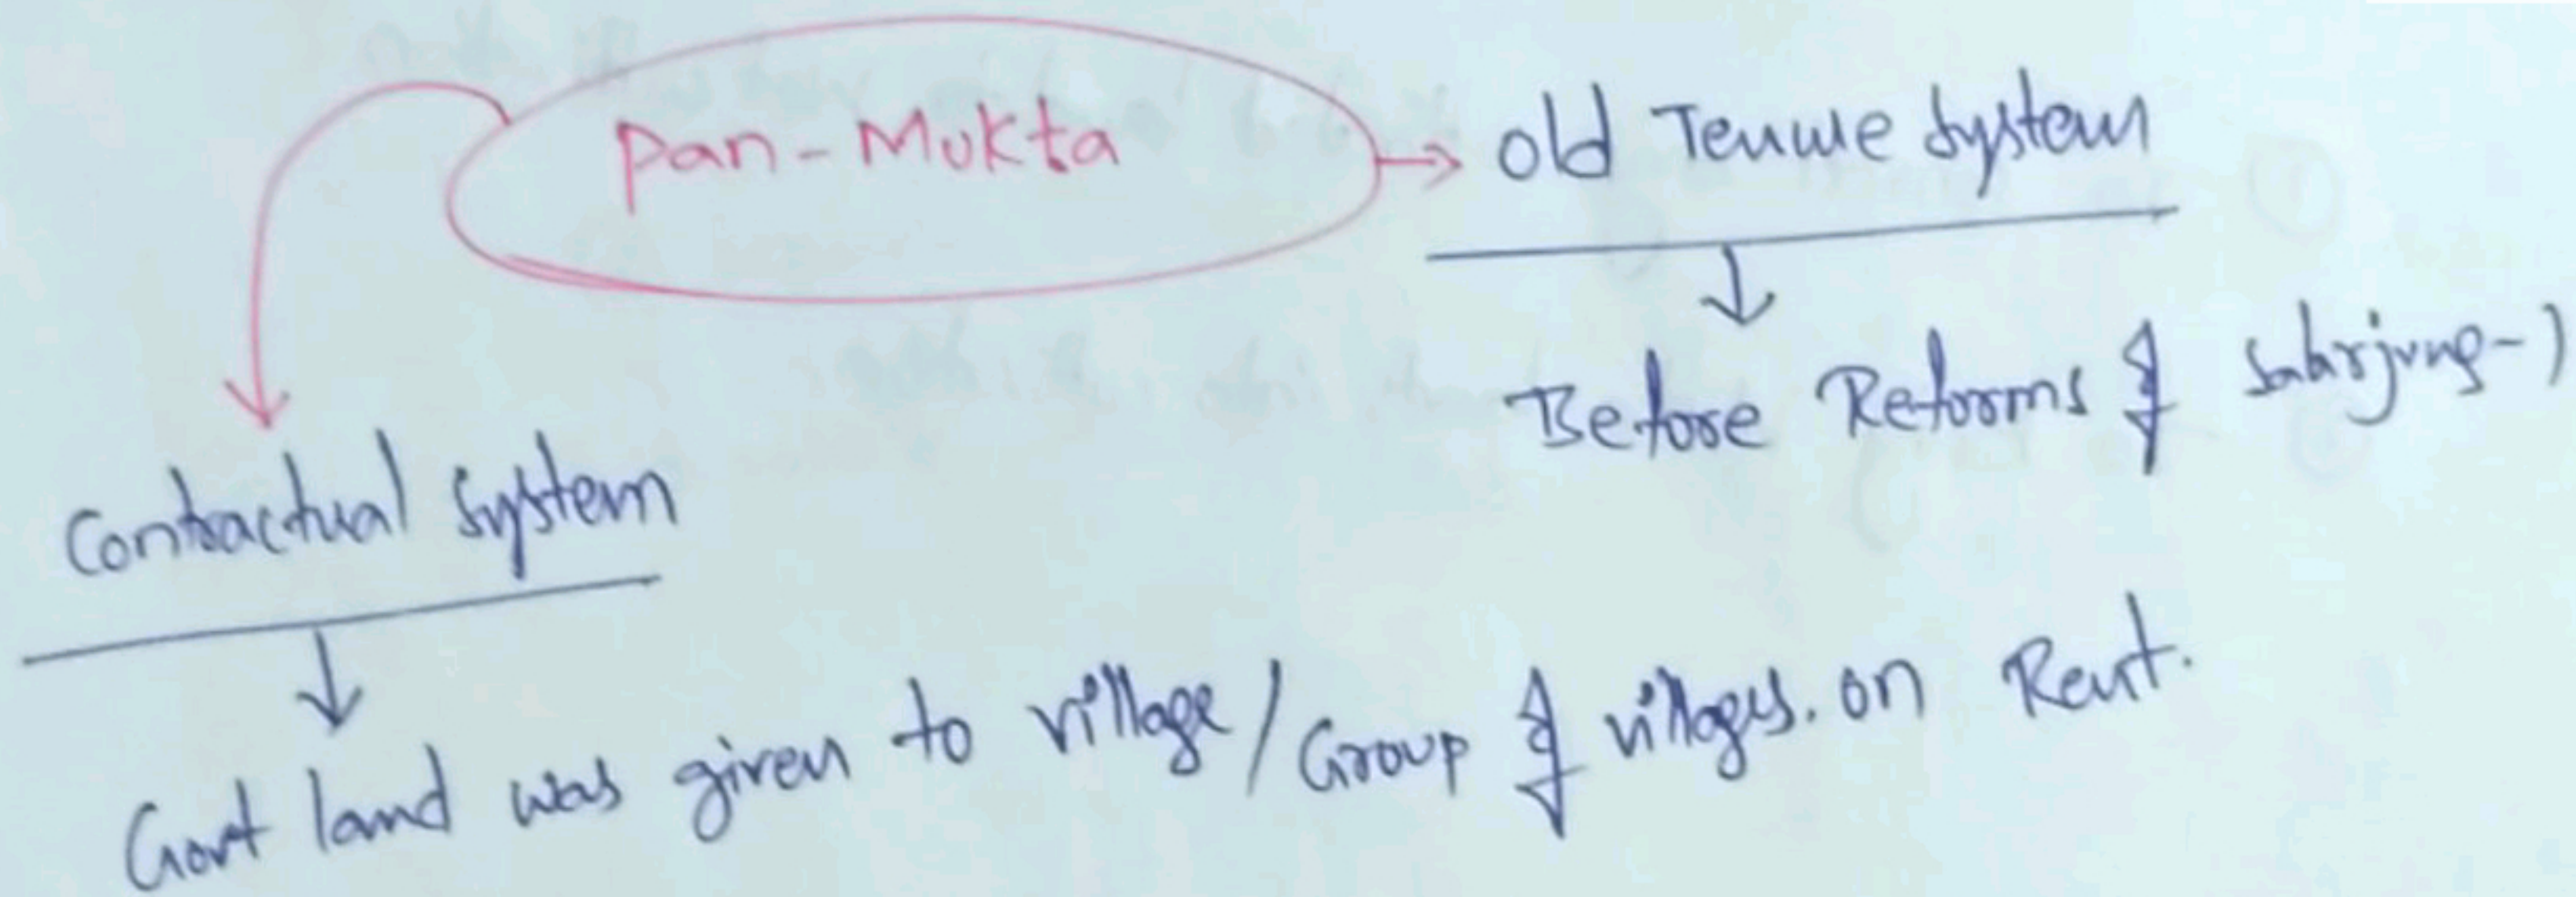 Pan-Mukta
old Tenure System
Before Reforms of Salarjung-)
Contractual System
Govt land was given to village/Group of villages. on Rent.